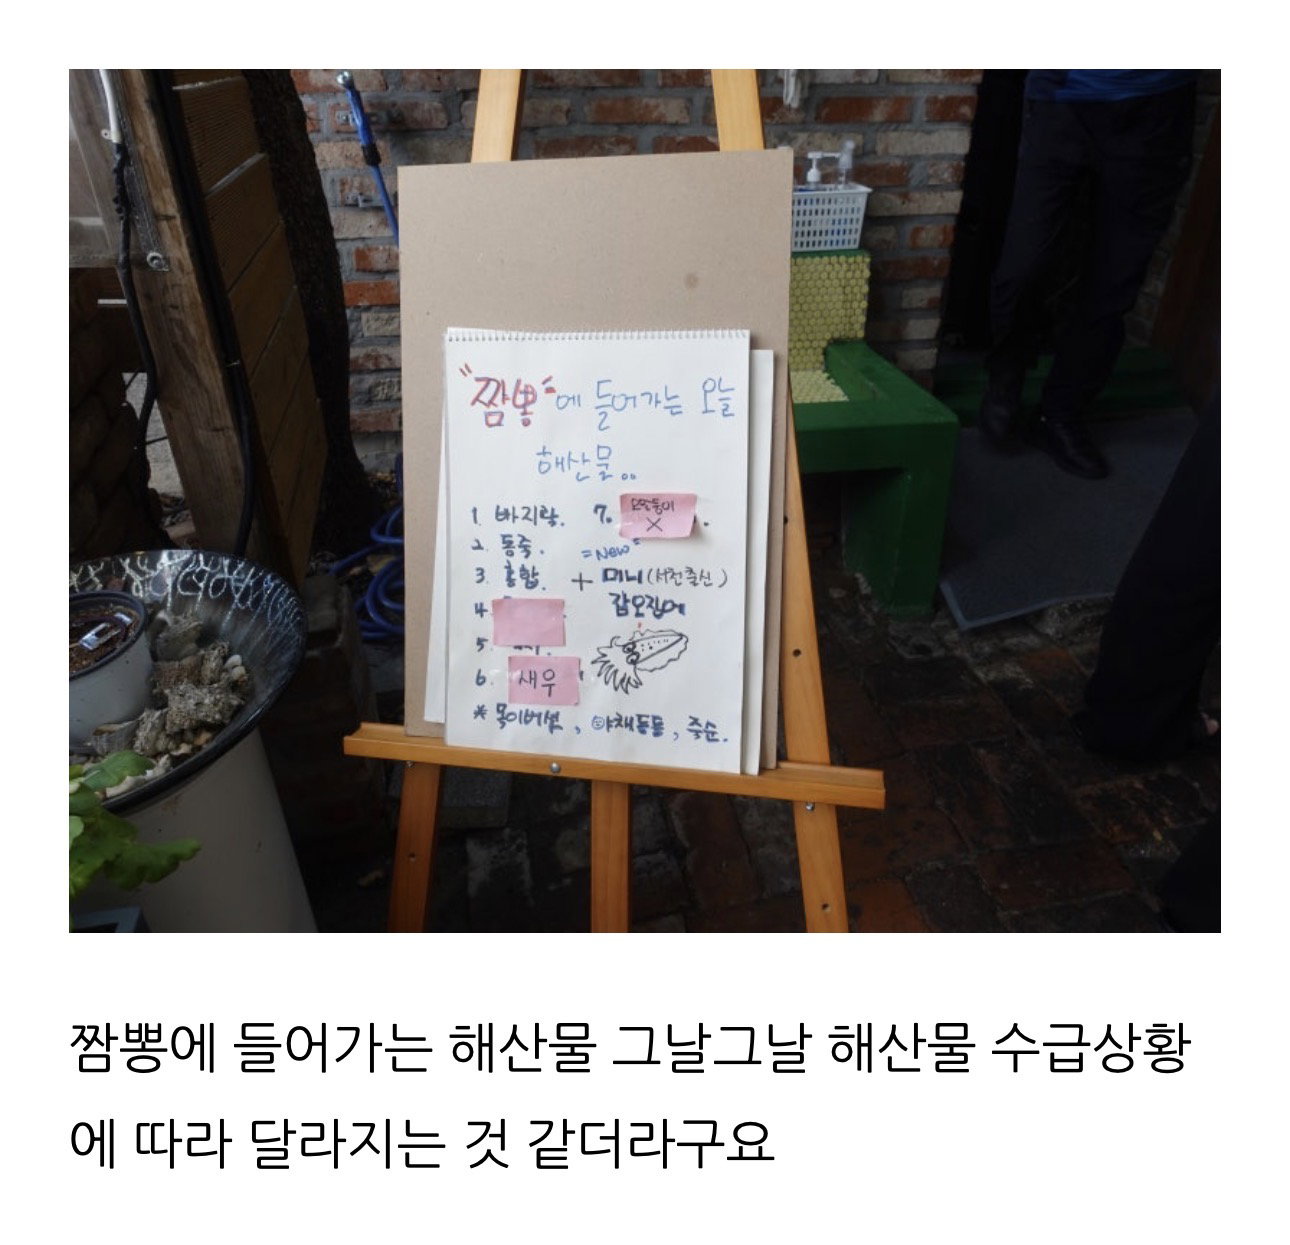 "짬뽕"에 들어가는 오늘
해산물..
1. 바지락.
2. 동죽.
3. 홍합.
4.
5.
6. 새우
7. 오만둥이 X
=New=
+ 미니(서천출신)
갑오징어
* 목이버섯, 야채등등, 죽순.
짬뽕에 들어가는 해산물 그날그날 해산물 수급상황
에 따라 달라지는 것 같더라구요